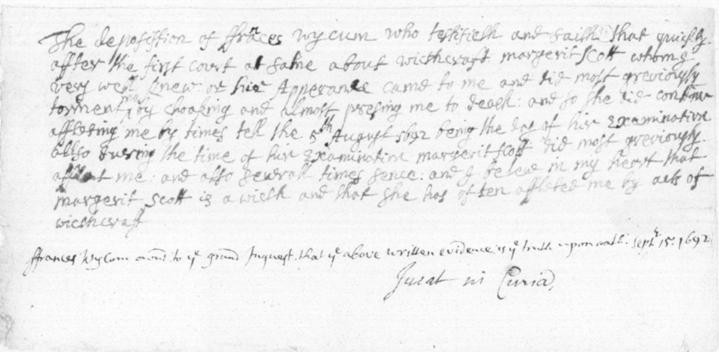 The deposistion of ffrances wycum who testifieth and saith that quickly
affter the first court at Salne about wicthcraft margerit Scott whome I
very well Knew or hir Apperance came to me and did most greviously
torment me by choaking and almost presing me to death: and so she did continue
afflicting me by times tell the 5th August 1692 being the day of hir Examination
also during the time of hir Examination margerit Scott did most greviously
afflict me: and also severall times sence: and I beleve in my heart that
margerit Scott is a wicth and that she has often afflicted me by acts of
wicthcraft
ffrances Wycom ownd to ye grand Inquest. that ye above written evidence: is ye truth upon oath: Sept. 15. 1692
Jurat in Curia,